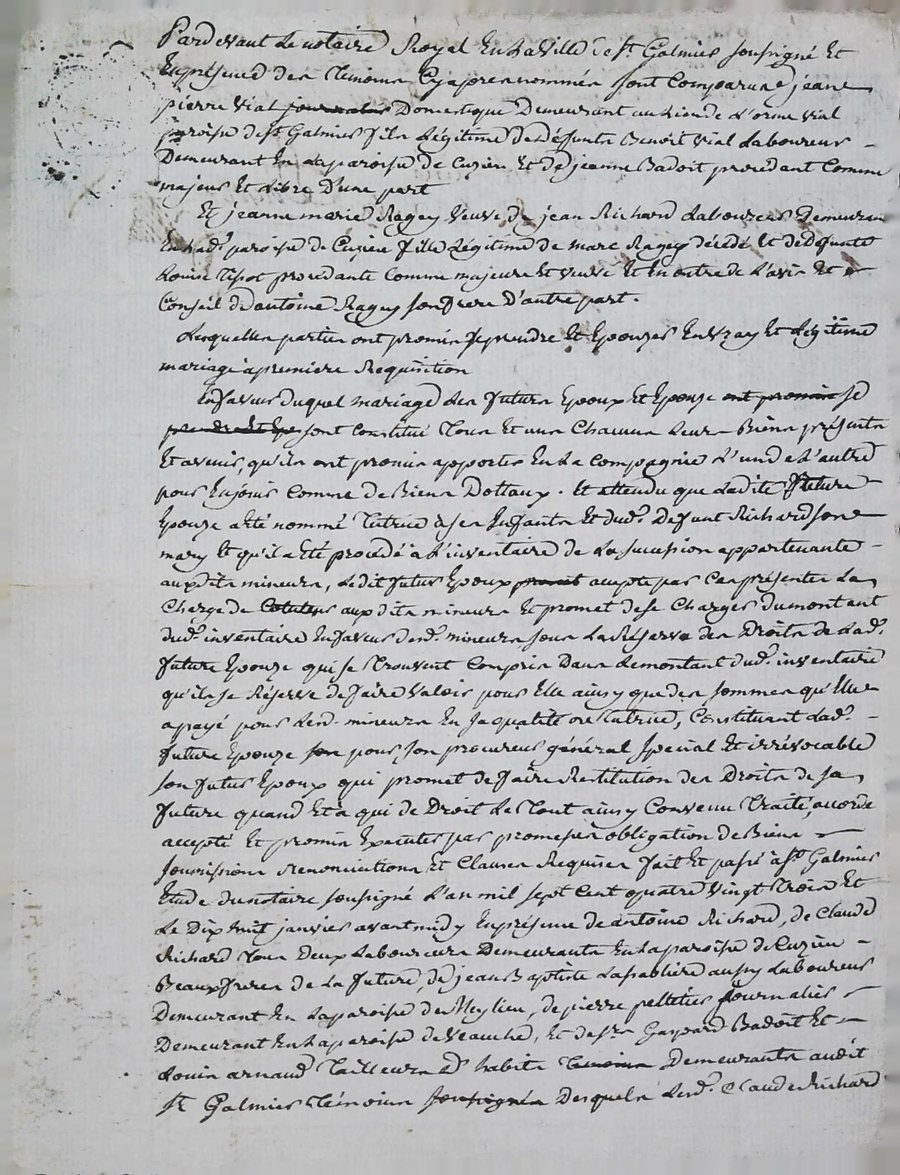 Pardevant Le notaire Royal En La Ville de st Galmier soussigné Et
En présence des Temoins Cy apres nommés sont Comparus jean
pierre Vial journalier Domestique Demeurant au Lieu de L'orme Vial
paroisse de st Galmier fils Légitime de deffunts Benoit Vial Laboureur
Demeurant En La paroisse de Cuzieu Et de jeanne Badoit procedant Comme
majeur Et Libre D'une part
Et jeanne marie Ragey Veuve de jean Richard Laboureur Demeurant
En Lad. paroisse de Cuzieu fille Légitime de marc Ragey décédé Et de defunte
Louise Tissot procedante Comme majeure Et veuve Et En outre de L'avis Et
Conseil de antoine Ragey son frere D'autre part.
Lesquelles parties ont promis se prendre Et Epouzer En Vray Et Légitime
mariage a premiere Requisition
En faveur duquel mariage Les futurs Epoux Et Epouze ont promis se
prendre Et Epo sont Constitué Tous Et uns Chacuns Leurs Biens présents
Et avenir, qu'ils ont promis apporter En La Compagnie L'un de L'autre
pour En jouir Comme de Biens Dottaux. Et attendu que Ladite future
Epouze a été nommé Tutrice a ses Enfants Et dud. Defunt Richard son
mary Et qu'il a Eté procédé a L'inventaire de La succession appartenante
auxdits mineurs, Ledit futur Epoux promet accepte par Ces présentes La
Charge de Cotuteur auxdits mineurs Et promet de se Charger du montant
dud. inventaire En faveur desd. mineurs sous La Réserve des Droits de Lad.
future Epouze qui se Trouvent Compris Dans Le montant dud. inventaire
qu'il se Réserve de faire Valoir pour Elle ainsy que des sommes qu'Elle
a payé pour Lesd. mineurs En sa qualité de Tutrice, Constituant Lad.
future Epouze son pour son procureur général spécial Et irrévocable
son futur Epoux qui promet de faire Restitution des Droits de sa
future quand Et a qui de Droit Le Tout ainsy Convenu Traité, accordé
accepté Et promis Executer par promesse obligation de Biens
soumissions Renonciations Et Clauses Requises fait Et passé a st Galmier
Etude du notaire soussigné L'an mil sept Cent quatre Vingt Trois Et
Le Dix huit janvier avant midy En présence de antoine Richard, de Claude
Richard Tous Deux Laboureurs Demeurants En La paroisse de Cuzieu
Beaux freres de La future, de jean Baptiste Lasabliere aussy Laboureur
Demeurant En La paroisse de Meylieu, de pierre pelletier journalier
Demeurant En La paroisse de Veauche, Et de sr Gaspard Badoit Et
Louis arnaud Tailleurs d'habits Temoins Demeurants audit
st Galmier Témoins soussignés Desquels Lesd. Claude Richard